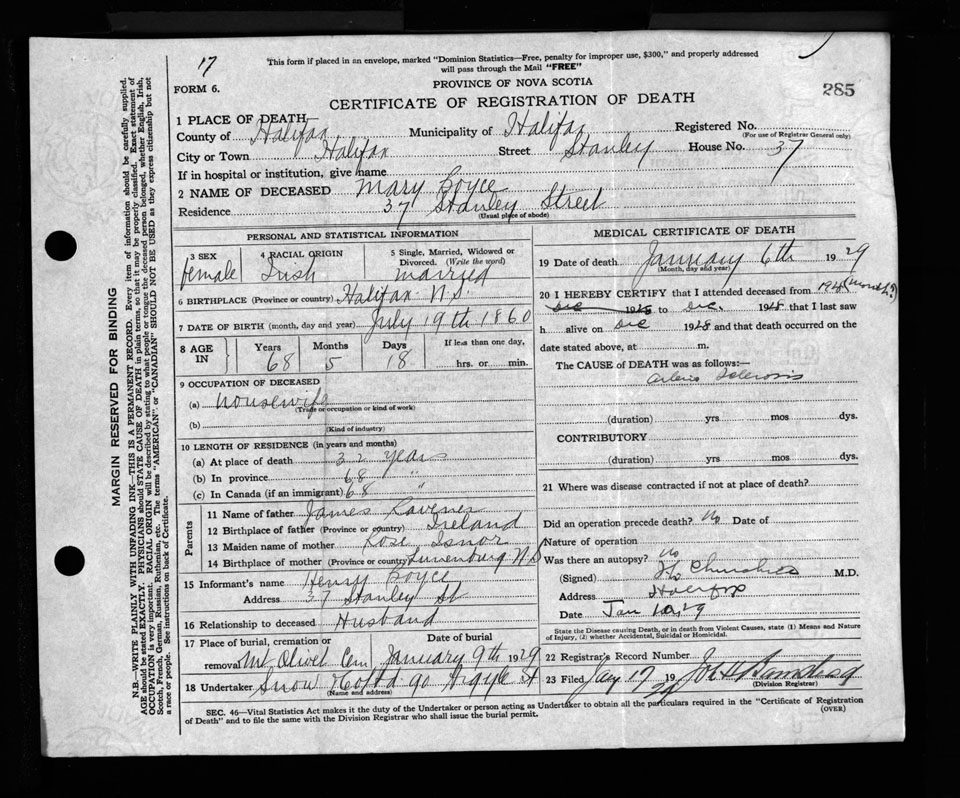 17
This form if placed in an envelope, marked "Dominion Statistics—Free, penalty for improper use, $300," and properly addressed
will pass through the Mail "FREE"
FORM 6.
PROVINCE OF NOVA SCOTIA
285
CERTIFICATE OF REGISTRATION OF DEATH
1 PLACE OF DEATH
County of Halifax Municipality of Halifax Registered No.
(For use of Registrar General only)
City or Town Halifax Street Stanley House No. 37
If in hospital or institution, give name
2 NAME OF DECEASED Mary Boyce
Residence 37 Stanley Street
(Usual place of abode)
PERSONAL AND STATISTICAL INFORMATION
3 SEX 4 RACIAL ORIGIN 5 Single, Married, Widowed or
Divorced. (Write the word)
female Irish married
6 BIRTHPLACE (Province or country) Halifax N.S.
7 DATE OF BIRTH (month, day and year) July 19th 1860
8 AGE IN Years Months Days If less than one day,
68 5 18 hrs. or min.
9 OCCUPATION OF DECEASED
(a) Housewife
(Trade or occupation or kind of work)
(b)
(Kind of industry)
10 LENGTH OF RESIDENCE (in years and months)
(a) At place of death 32 years
(b) In province 68 "
(c) In Canada (if an immigrant) 68 "
Parents
11 Name of father James
12 Birthplace of father (Province or country) Ireland
13 Maiden name of mother Rose Isnor
14 Birthplace of mother (Province or country) Lunenburg N.S.
15 Informant's name Henry Boyce
Address 37 Stanley St
16 Relationship to deceased Husband
17 Place of burial, cremation or Date of burial
removal Mt Olivet Cem January 9th 1929
18 Undertaker Snow & Co Ltd 90 Argyle St
(Name and address)
MEDICAL CERTIFICATE OF DEATH
19 Date of death January 6th 1929
(Month, day and year)
20 I HEREBY CERTIFY that I attended deceased from 1928 (month?)
Dec 1928 to Dec. 1928 that I last saw
h alive on Dec 1928 and that death occurred on the
date stated above, at m.
The CAUSE OF DEATH was as follows:—
Arterio Sclerosis
(duration) yrs mos dys.
CONTRIBUTORY
(duration) yrs. mos. dys.
21 Where was disease contracted if not at place of death?
Did an operation precede death? No Date of
Nature of operation
Was there an autopsy? No
(Signed) Churchill M.D.
Address Halifax
Date Jan 10 29
State the Disease causing Death, or in death from Violent Causes, state (1) Means and Nature
of Injury, (2) whether Accidental, Suicidal or Homicidal.
22 Registrar's Record Number
23 Filed Jany 17 1929
(Division Registrar)
SEC. 46—Vital Statistics Act makes it the duty of the Undertaker or person acting as Undertaker to obtain all the particulars required in the "Certificate of Registration
of Death" and to file the same with the Division Registrar who shall issue the burial permit.
(OVER)
MARGIN RESERVED FOR BINDING
N.B.—WRITE PLAINLY WITH UNFADING INK—THIS IS A PERMANENT RECORD. Every item of information should be carefully supplied.
AGE should be stated EXACTLY. PHYSICIANS should STATE CAUSE OF DEATH in plain terms, so that it may be properly classified. Exact statement of
OCCUPATION is very important. RACIAL ORIGIN will be described by stating to what people or tongue the deceased person belonged, whether English, Irish,
Scotch, French, German, Russian, Ruthenian, etc. The terms "AMERICAN" or "CANADIAN" SHOULD NOT BE USED as they express citizenship but not
a race or people. See instructions on back of Certificate.